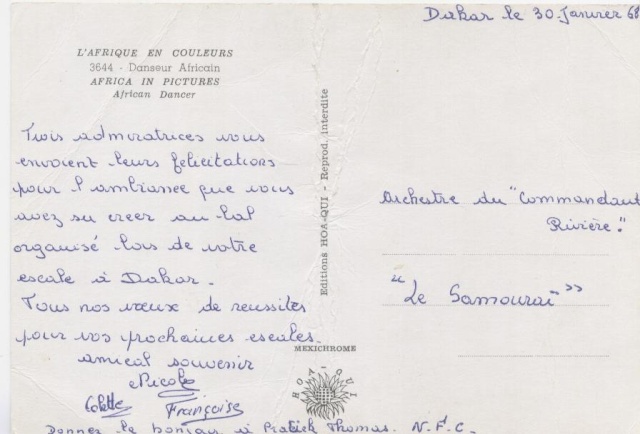 Dakar le 30 Janvier 68
L'AFRIQUE EN COULEURS
3644 - Danseur Africain
AFRICA IN PICTURES
African Dancer
Trois admiratrices vous
envoient leurs felicitations
pour l'ambiance que vous
avez su creer au bal
organisé lors de votre
escale à Dakar.
Tous nos vœux de reussites
pour vos prochaines escales.
amical souvenir
Nicole
Colette Françoise
Donner le bonjour à Patrick Thomas. N.F.C.
Editions HOA-QUI - Reprod. interdite
MEXICHROME
HOA-QUI
Orchestre du "Commandant
Rivière."
"Le Samouraï"